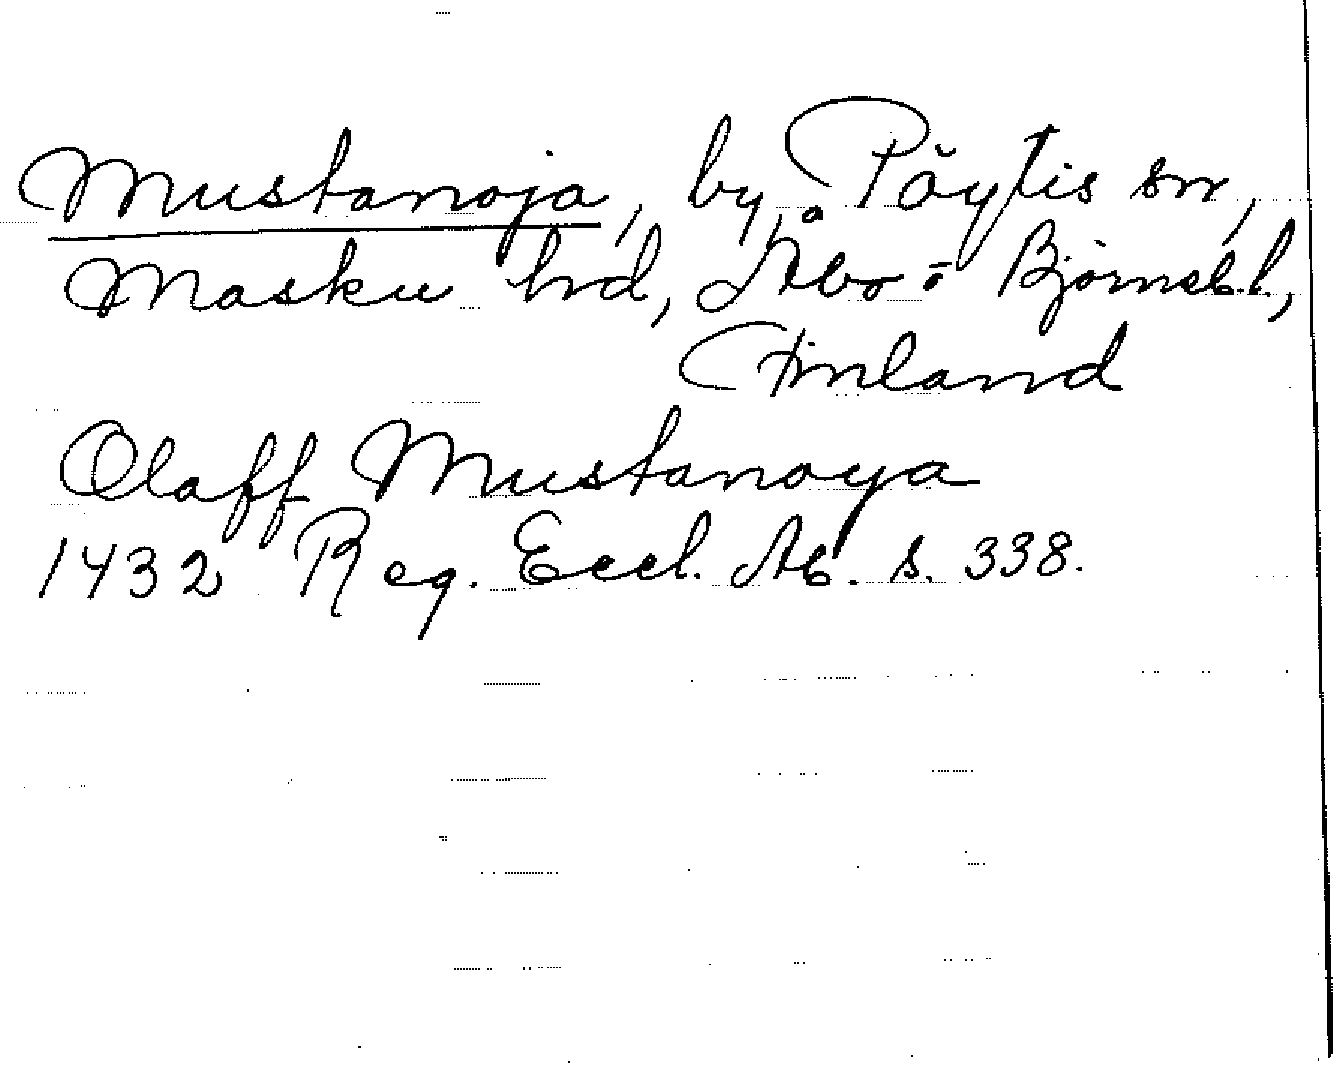 Mustanoja, by, Pöytis sn,
Masku hd, Åbo o Björnebl,
Finland
Olaff Mustanoya
1432 Reg. Eccl. Ab. s. 338.